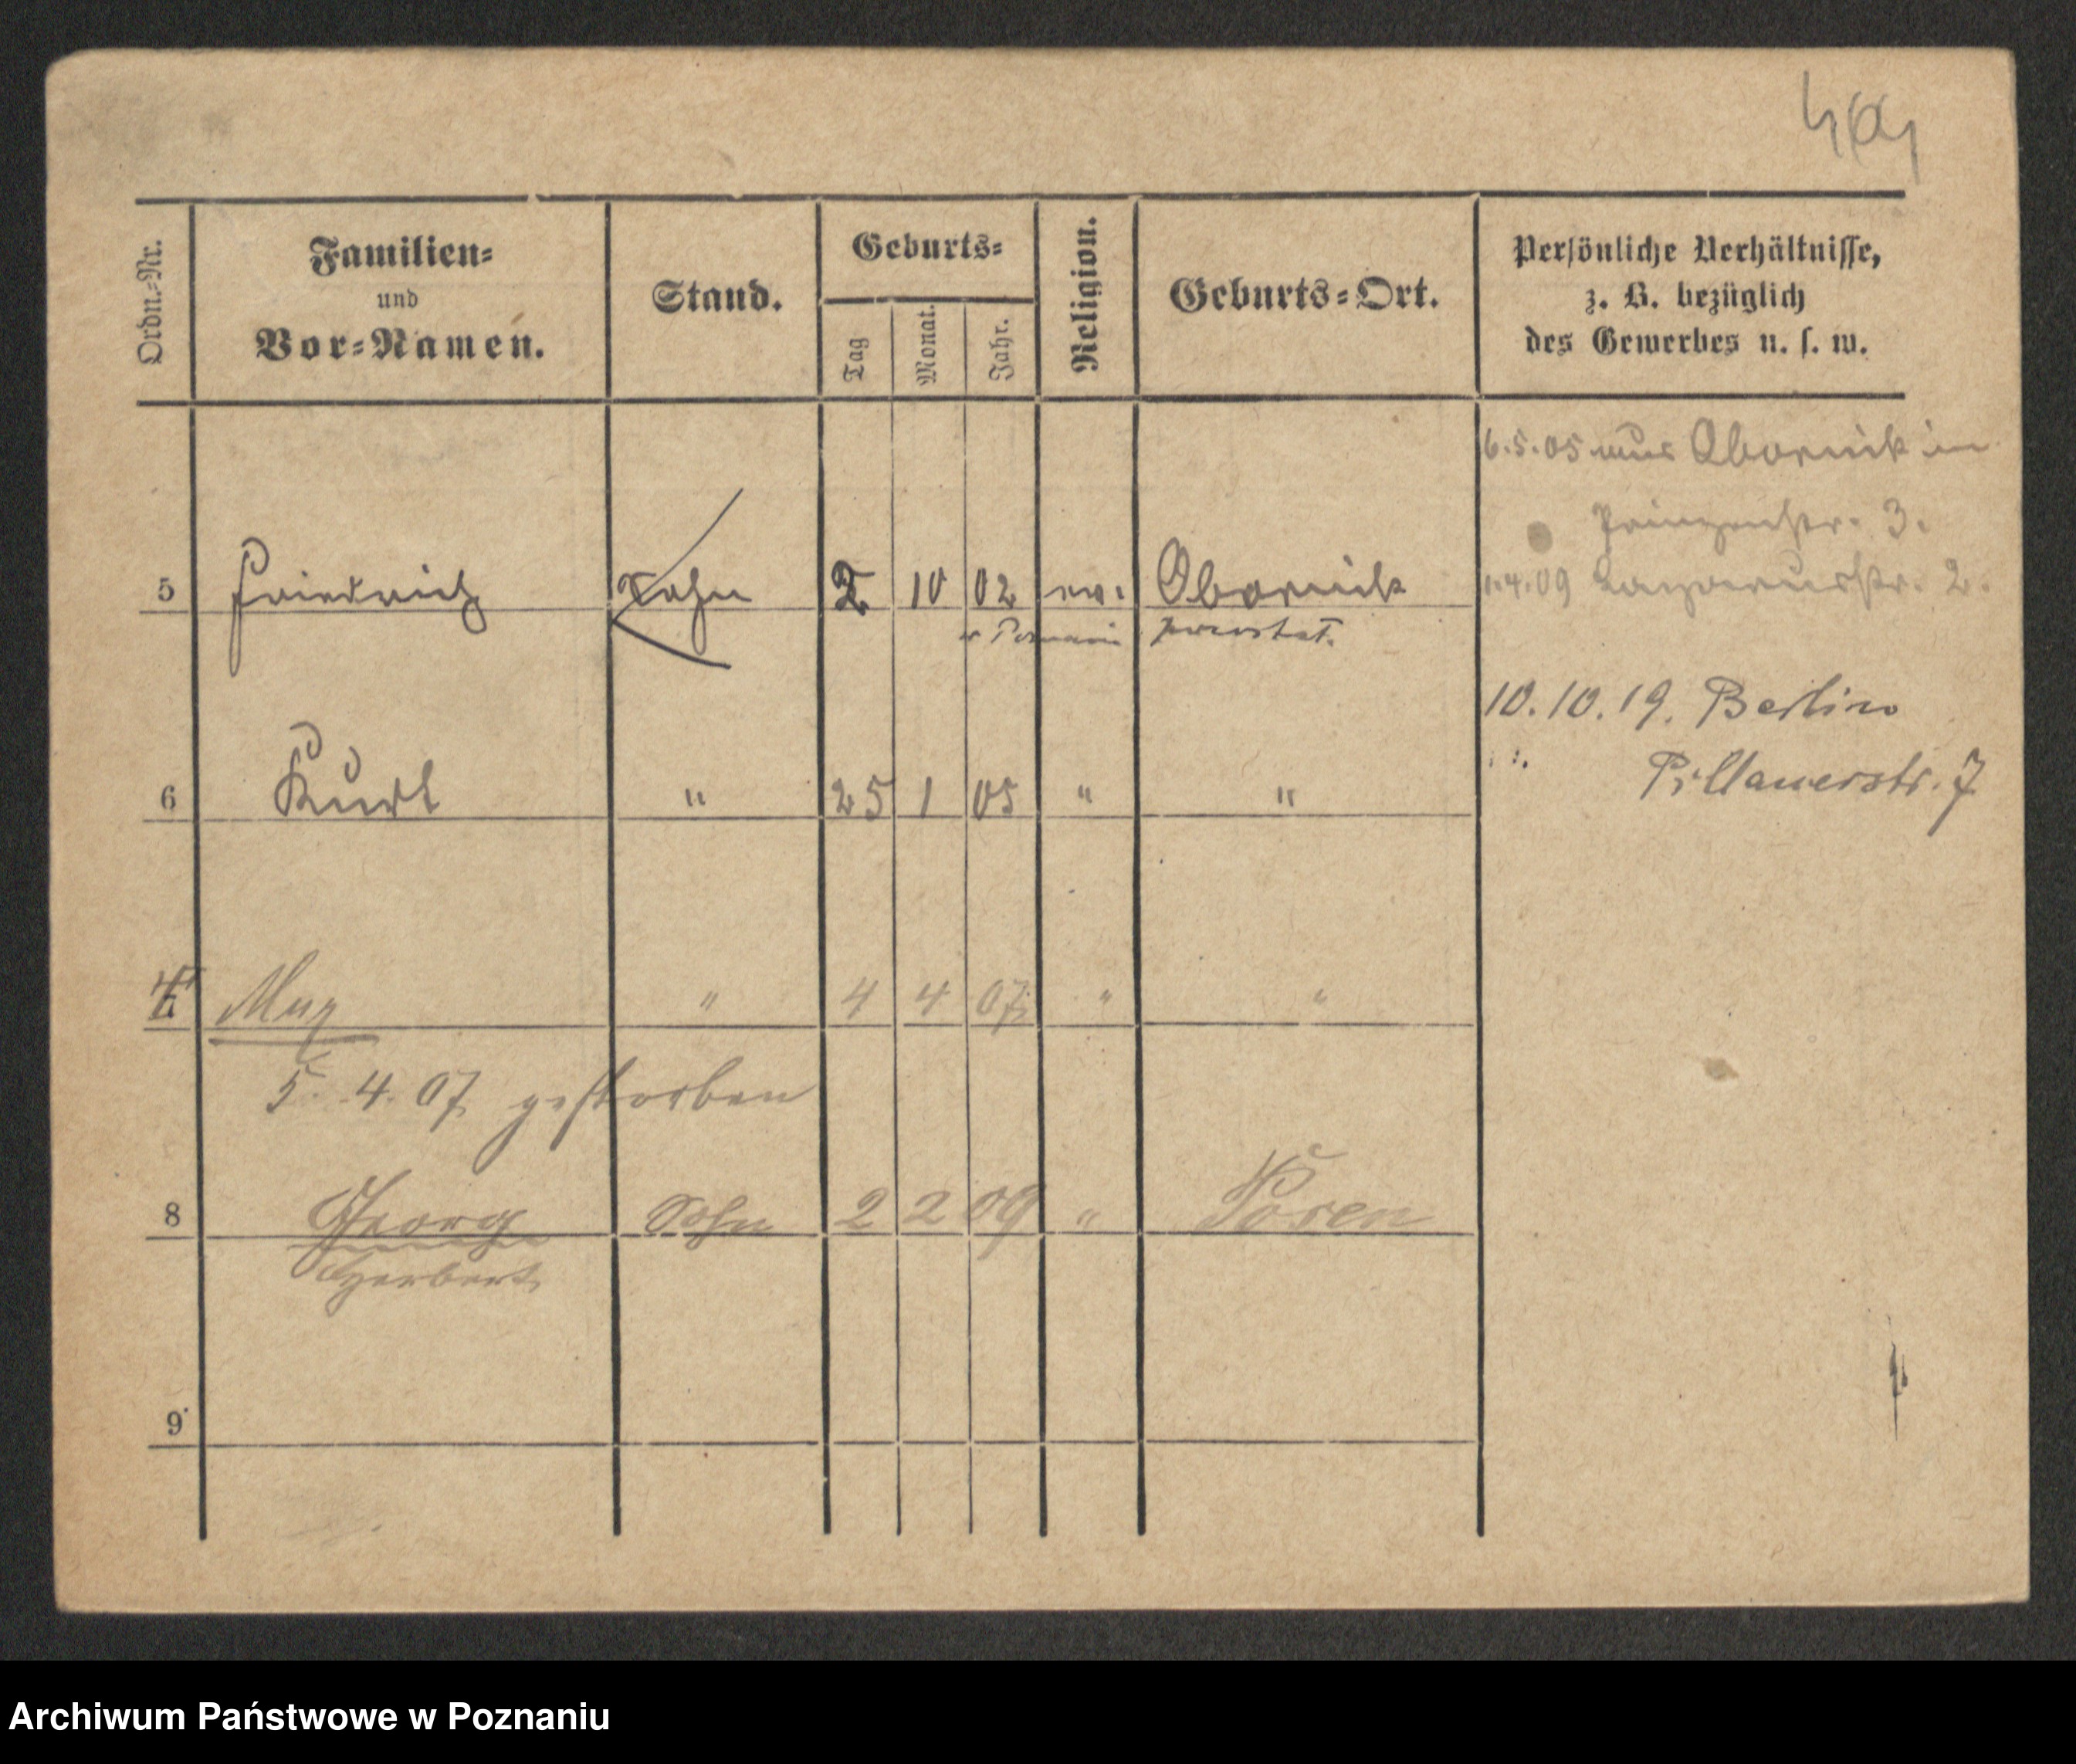 464
Ordn.-Nr. Familien- und Vor-Namen. Stand. Geburts- Tag Monat. Jahr. Religion. Geburts-Ort. Persönliche Verhältnisse, z. B. bezüglich des Gewerbes u. s. w.
6.5.05 aus Obornik in
Prinzenstr. 3.
5 Friedrich Sohn 2 10 02 ev. Obornik 1.4.09 Lazarusstr. 2.
w Poznaniu pozostał.
10.10.19. Berlin
Pillauerstr. 7
6 Kurt " 25 1 05 " "
7 Max " 4 4 07 " "
5. 4. 07 gestorben
8 Georg Sohn 2 2 09 " Posen
Herbert
9
Archiwum Państwowe w Poznaniu